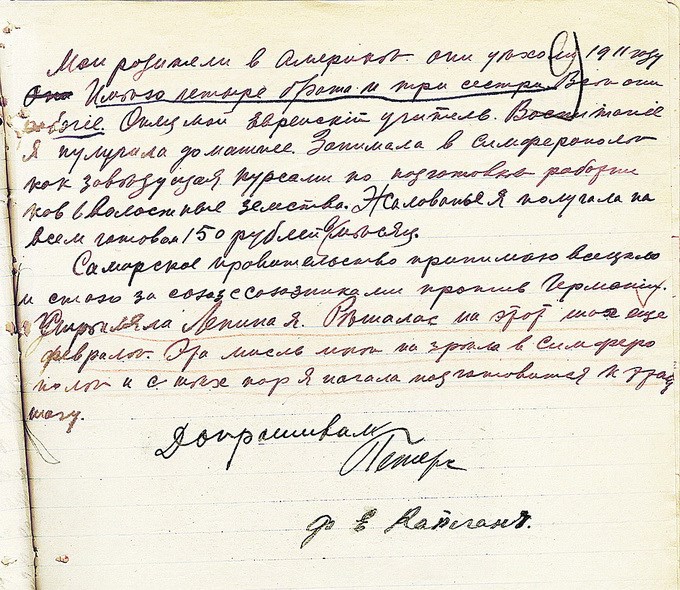 Мои родители в Америке они уехали в 1911 году
Имею четыре брата и три сестры Все они
рабочие. Отец мой еврейскій учитель. Воспитаніе
я пулучала домашнее. Занимала в Симферополе
как заведующая курсами по подготовке работни
ков в волостные земства. Жалованье я получала на
всем готовом 150 рублей в месяц.
Самарское правительство принимаю всецело
и стою за союз с союзниками против Германіи.
Стреляла в Ленина я. Решалас на этот шаг еще
феврале. Эта мысль мне на зрела в Симферо
поле и с тех пор я начала подготоватся к этому
шагу.
Допрашивал
Петерс
Ф Е Каплан.